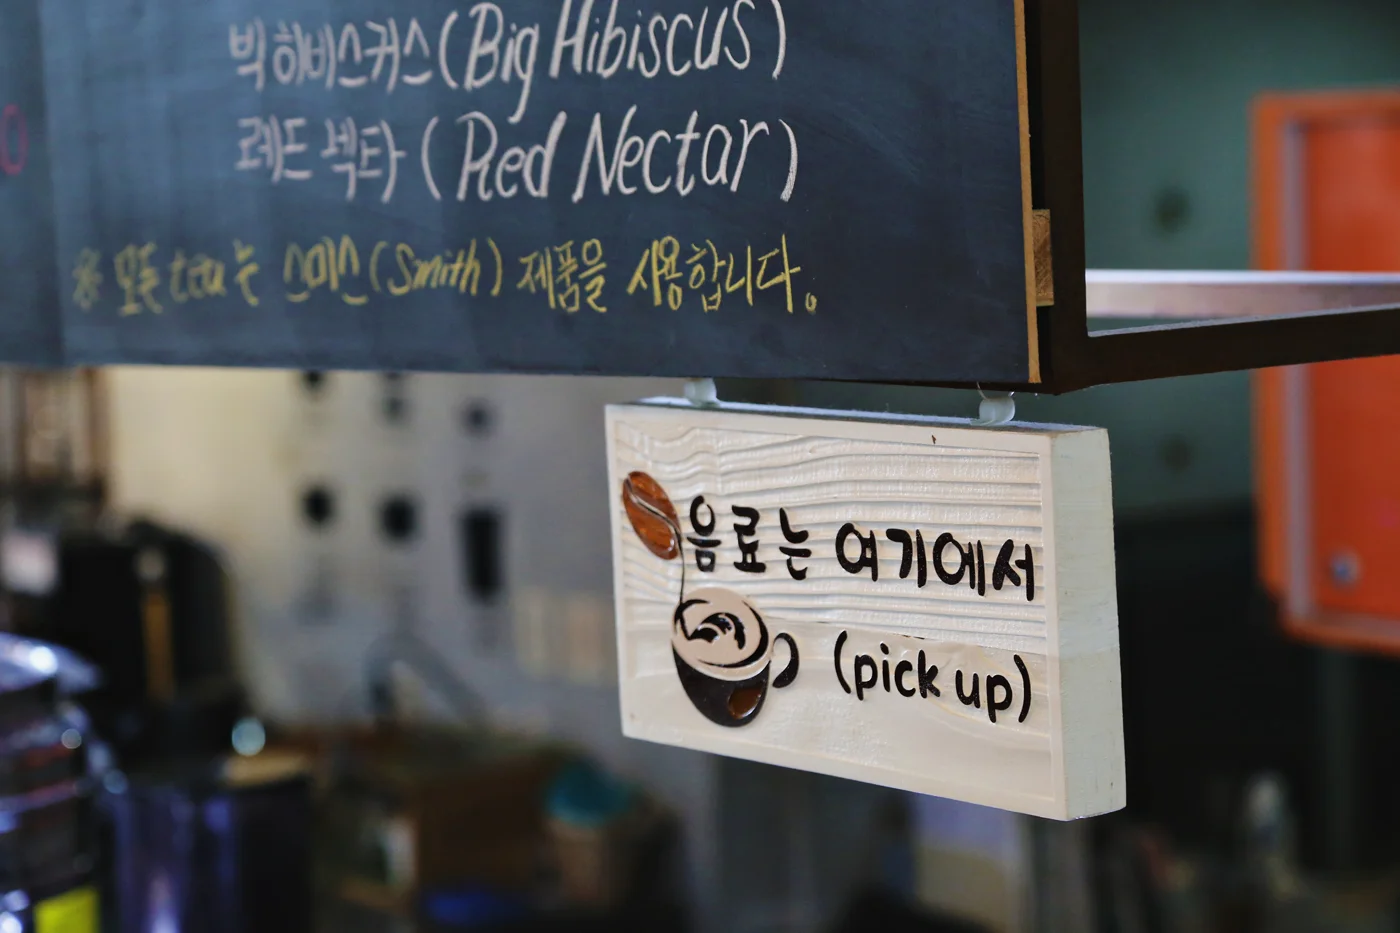 빅 히비스커스 (Big Hibiscus)
레드 넥타 (Red Nectar)
※ 모든 tea는 스미스 (Smith) 제품을 사용합니다.
음료는 여기에서
(pick up)